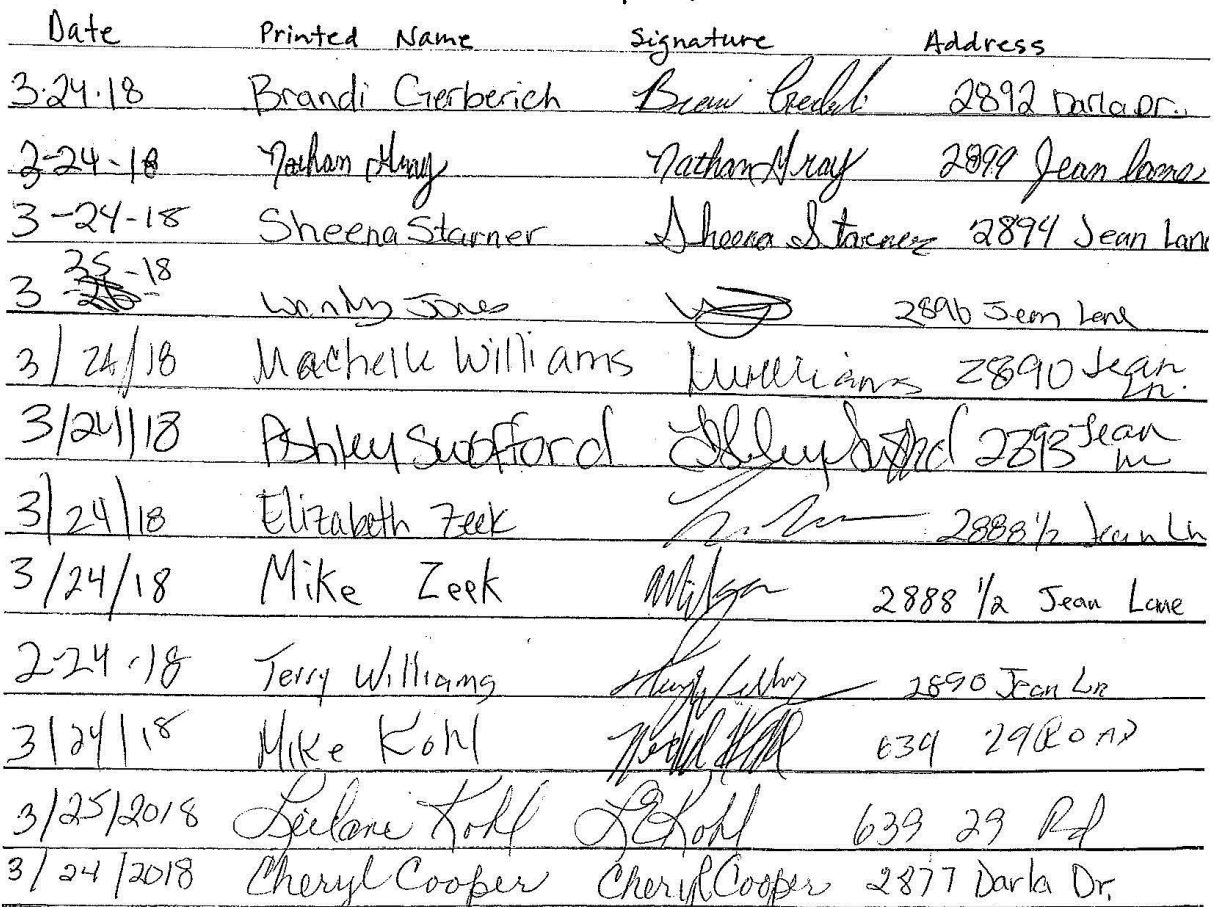 Date Printed Name Signature Address
3-24-18 Brandi Gerberich 2892 Darla Dr.
3-24-18 Nathan Gray Nathan Gray 2899 Jean Lane
3-24-18 Sheena Starner Sheena Starner 2894 Jean Lane
3 25-18 Jones 2896 Jean Lane
3/24/18 Machelle Williams MWilliams 2890 Jean Ln.
3/24/18 Ashley Swofford 2893 Jean Ln
3/24/18 Elizabeth Zeek 2888 1/2 Jean Ln
3/24/18 Mike Zeek 2888 1/2 Jean Lane
2-24-18 Terry Williams 2890 Jean Ln
3/24/18 Mike Kohl 639 29 ROAD
3/25/2018 Leilani Kohl LEKohl 639 29 Rd
3/24/2018 Cheryl Cooper Cheryl Cooper 2877 Darla Dr.